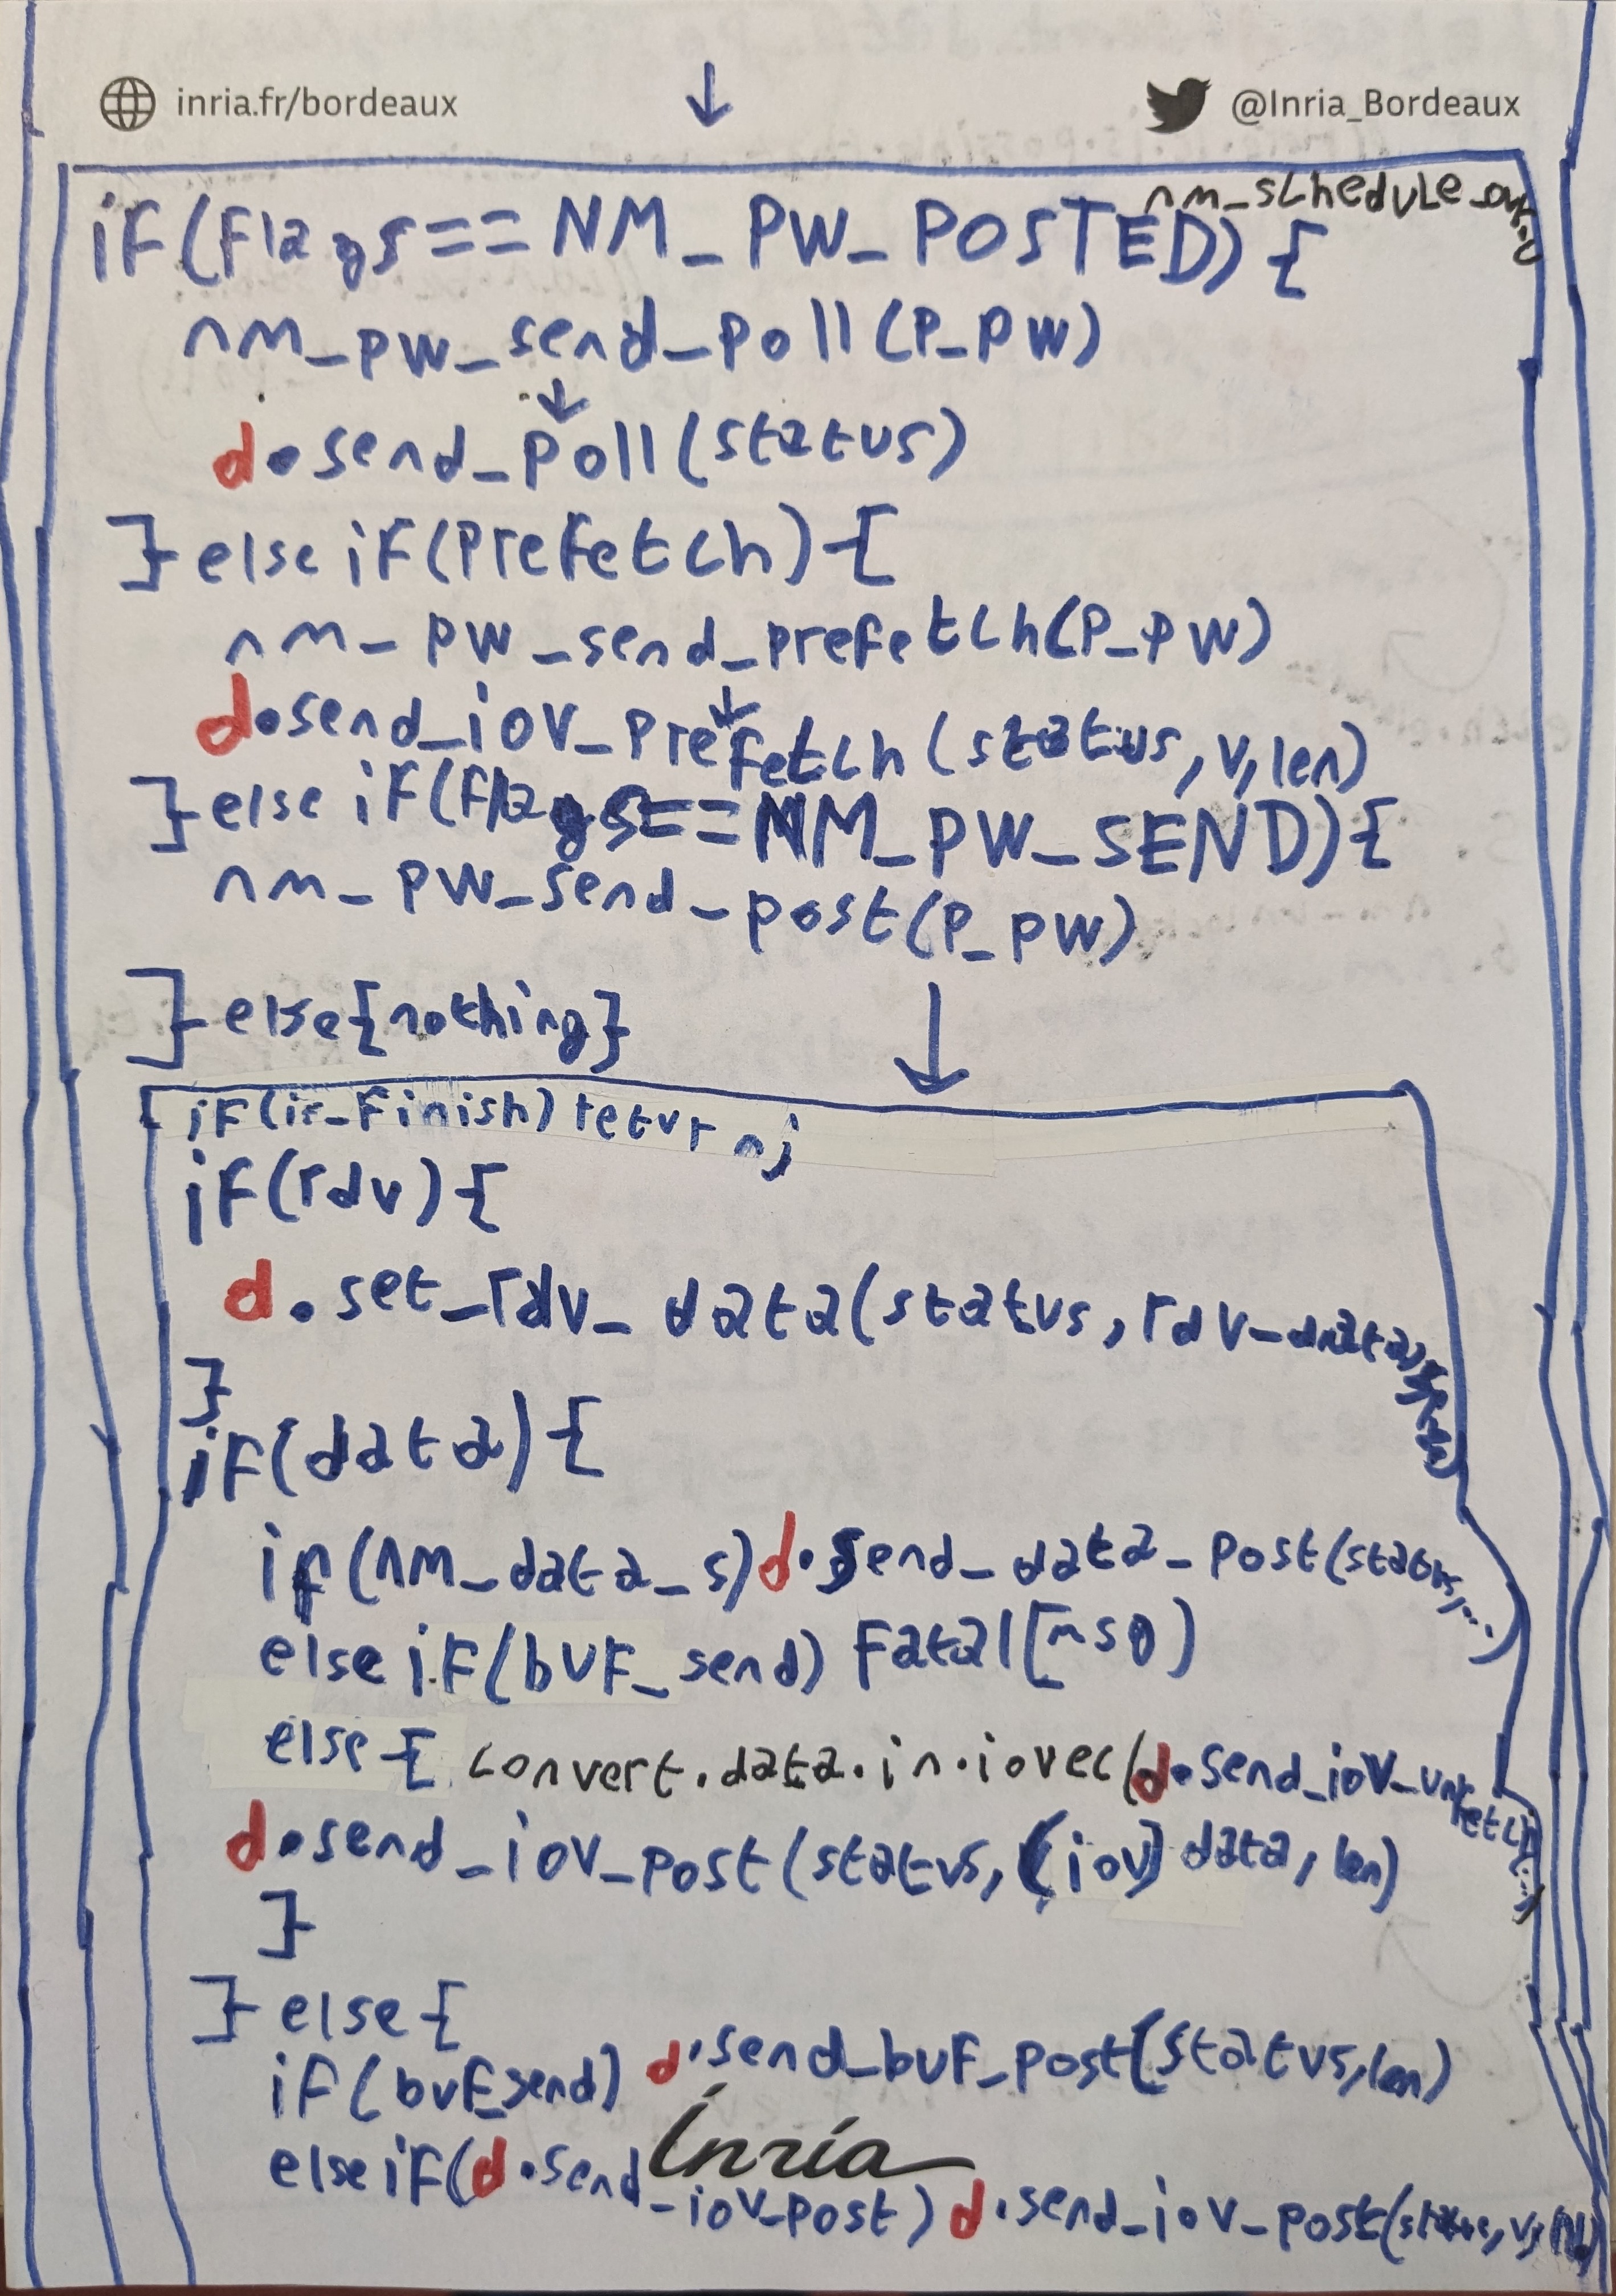 inria.fr/bordeaux @Inria_Bordeaux
nm_schedule_out
if(flags==NM_PW_POSTED){
nm_pw_send_poll(p_pw)
d.send_poll(status)
}else if(prefetch){
nm_pw_send_prefetch(p_pw)
d.send_iov_prefetch(status,v,len)
}else if(flags==NM_PW_SEND){
nm_pw_send_post(p_pw)
}else{nothing}
if(is_finish)return;
if(rdv){
d.set_rdv_data(status,rdv_data,
}
if(data){
if(nm_data_s)d.send_data_post(status,...)
else if(buf_send) fatal(msg)
else{ convert.data.in.iovec(d.send_iov_unfetch...)
d.send_iov_post(status,(iov)data,len)
}
}else{
if(buf_send) d.send_buf_post(status,len)
Inria
else if(d.send_iov_post) d.send_iov_post(status,v,